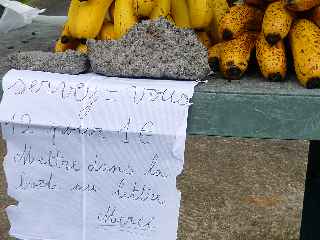 servez-vous
12 pour 1€
Mettre dans la
boite au lettre
Merci